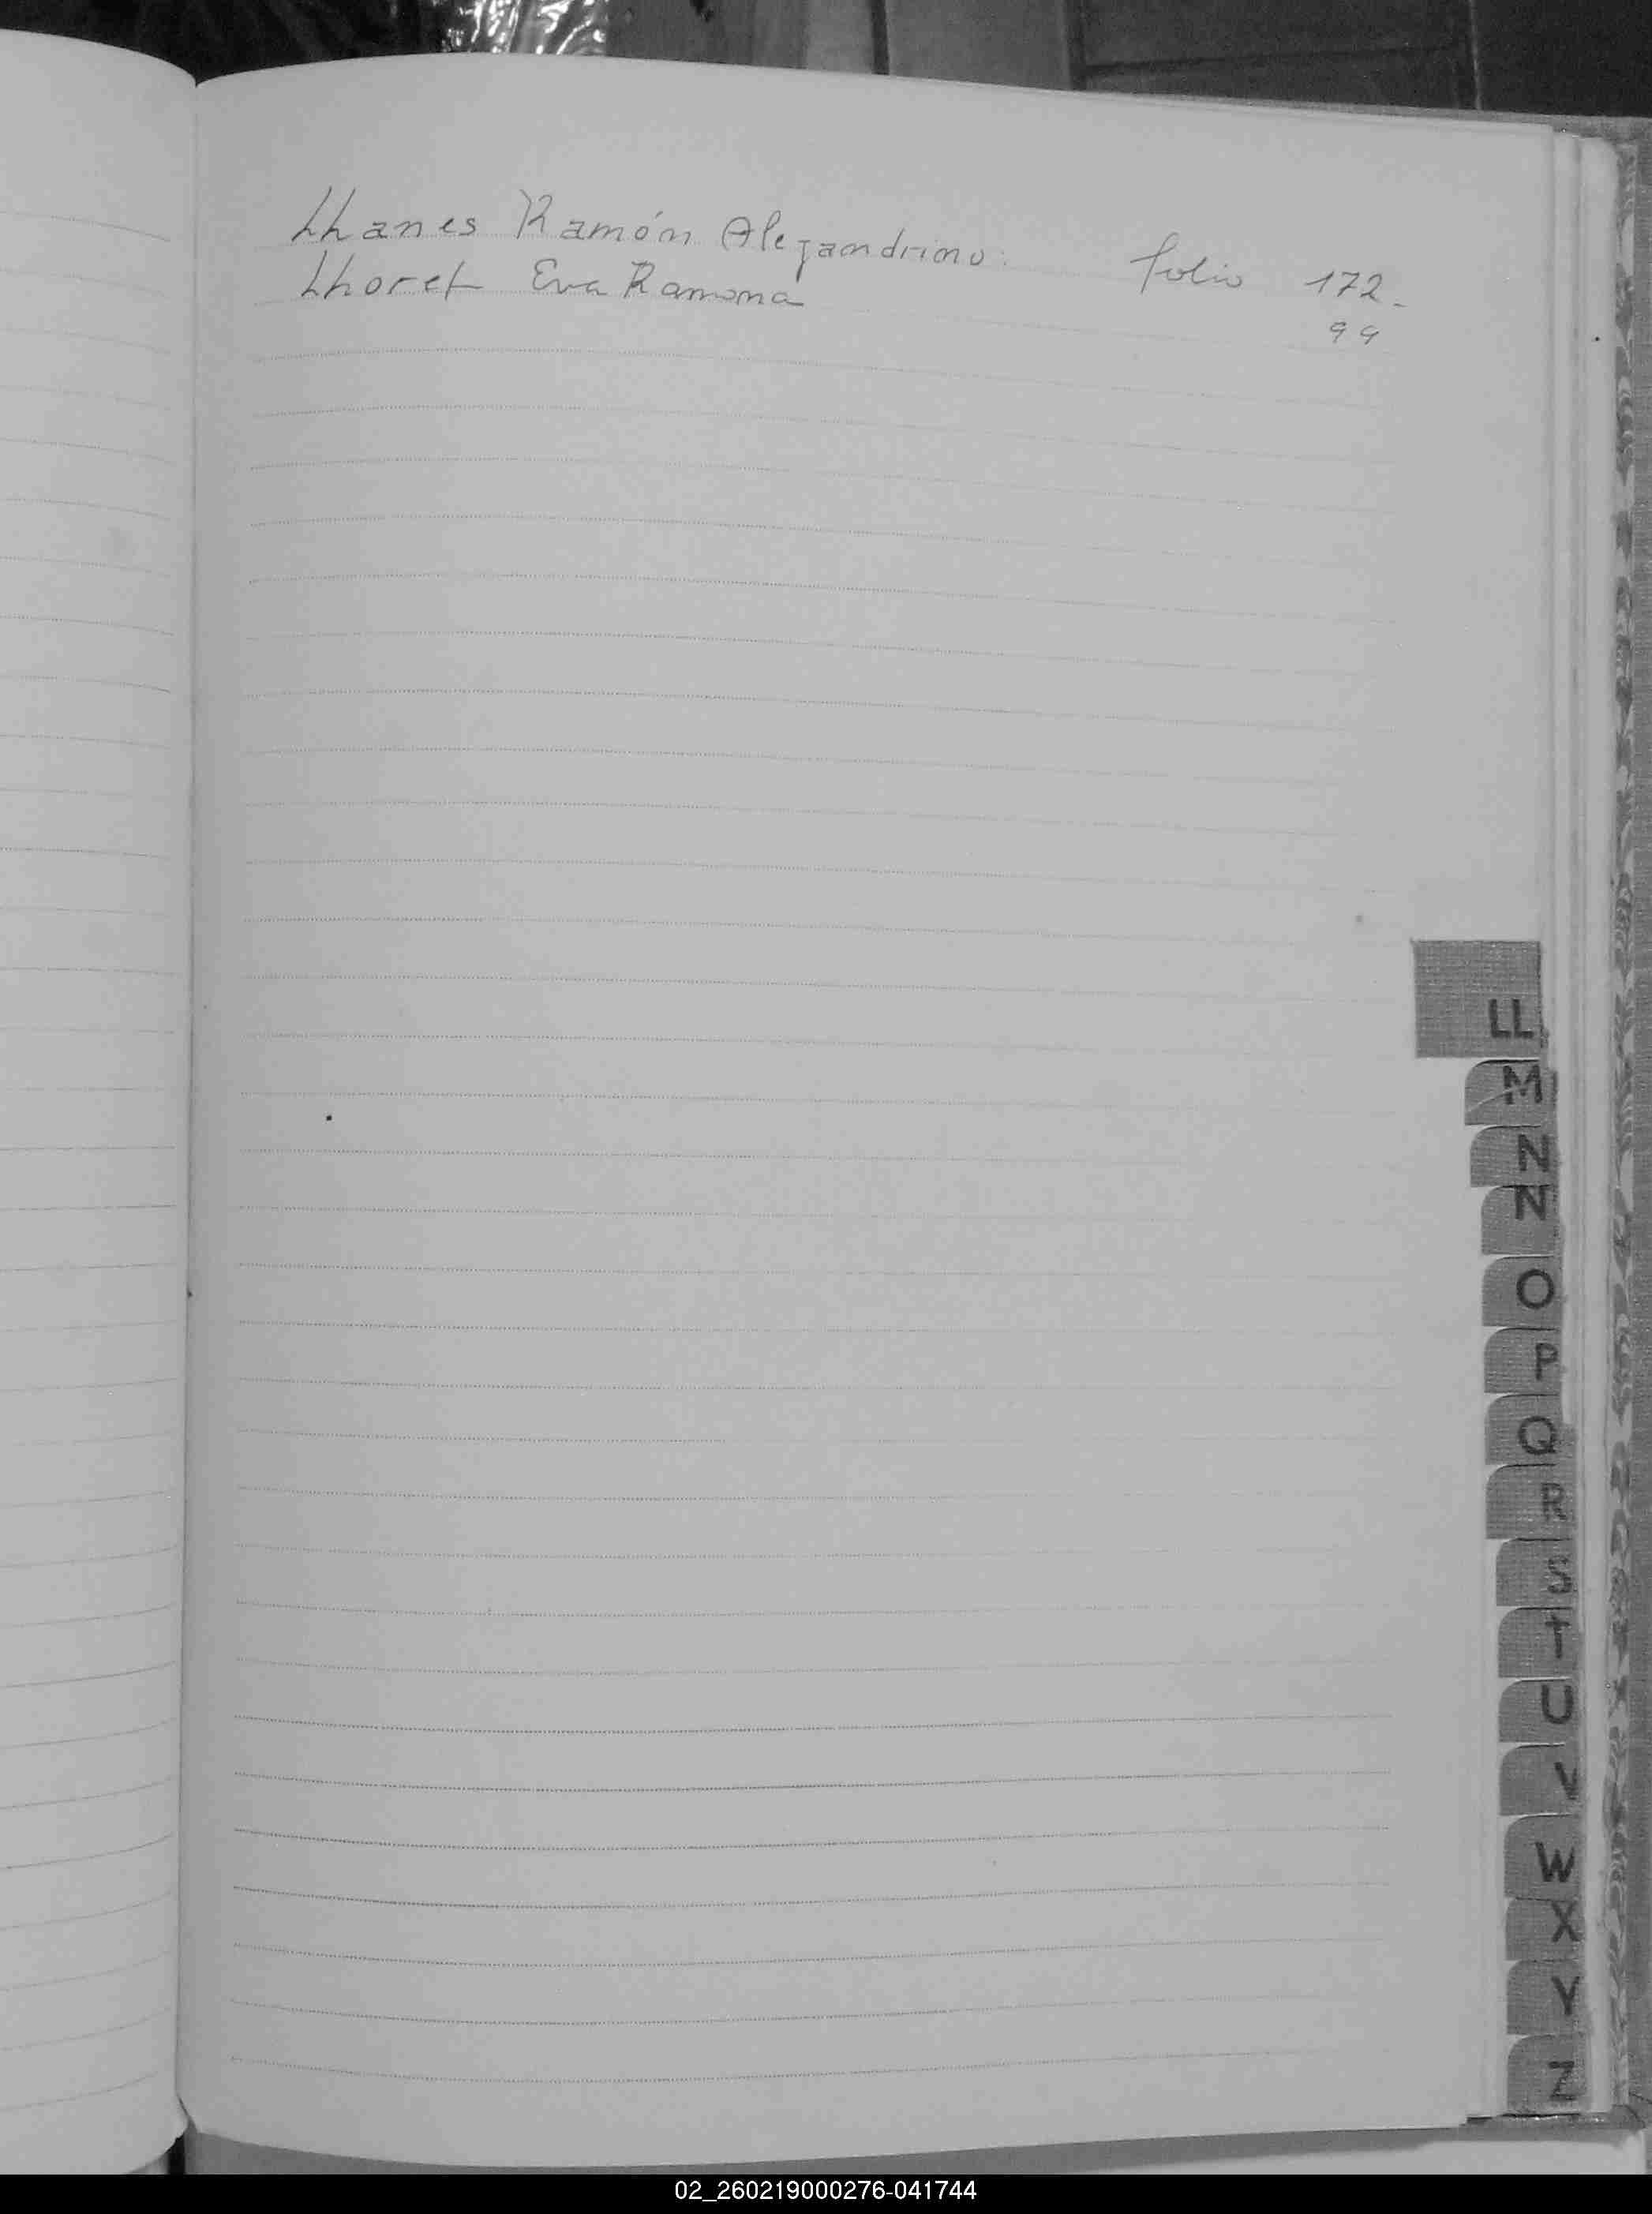 Llanes Ramón Alejandrino. folio 172.-
Lloret Eva Ramona 99
LL
M
N
N
O
P
Q
R
S
T
U
V
W
X
Y
Z
02_260219000276-041744